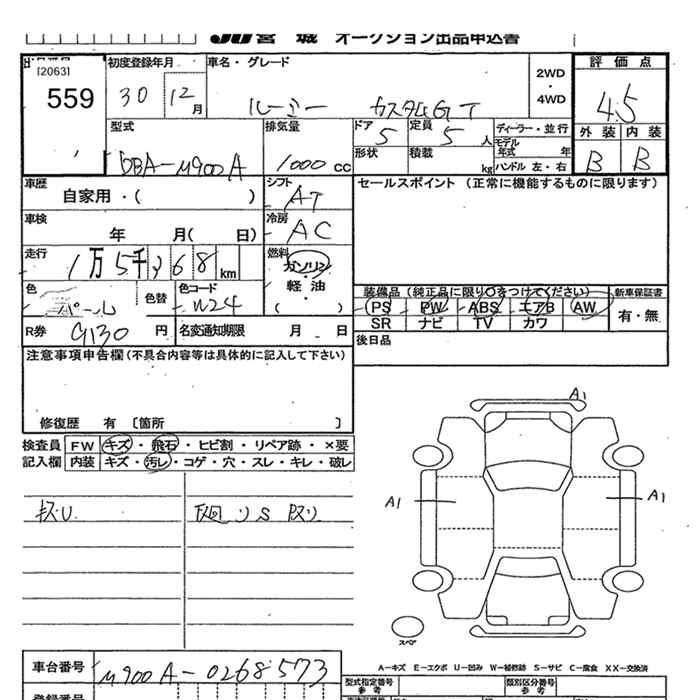 JU 宮城 オークション出品申込書
出品番号 初度登録年月 車名・グレード 2WD・4WD 評価点
[2063]
559 30 12月 ルーミー カスタムG T 4.5
型式 排気量 ドア 定員 ディーラー・並行 外装 内装
DBA-M900A 1000cc 5 5人 モデル年式 年 B B
形状 積載 kg ハンドル 左・右
車歴 シフト セールスポイント (正常に機能するものに限ります)
自家用・( ) AT
車検 冷房
年 月( 日) AC
走行 燃料
1万5千368km ガソリン・軽油( )
色 色替 色コード 装備品(純正品に限り○をつけてください) 新車保証書
パール W24 PS PW ABS エアB AW 有・無
R券 9130円 名変通知期限 月 日 SR ナビ TV カワ
注意事項申告欄(不具合内容等は具体的に記入して下さい) 後日品
修復歴 有 [箇所 ]
A1
検査員 FW キズ・飛石・ヒビ割・リペア跡・×要
記入欄 内装 キズ・汚レ・コゲ・穴・スレ・キレ・破レ
A1 A1
スペア
A-キズ E-エクボ U-凹み W-補修跡 S-サビ C-腐食 XX-交換済
車台番号 M900A-0268573 型式指定番号 参考 類別区分番号 参考
登録番号